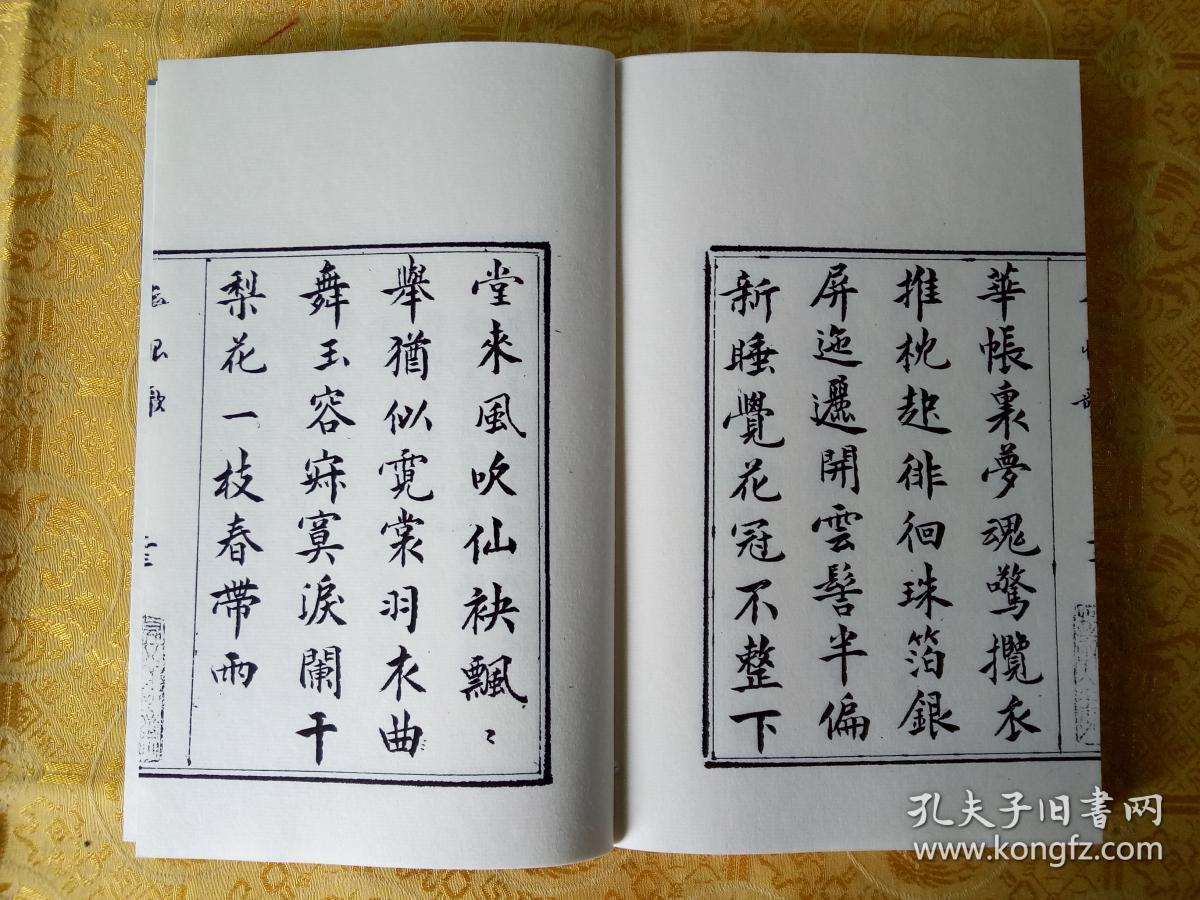 華帳裏夢魂驚攬衣
推枕起徘徊珠箔銀
屏迤邐開雲髻半偏
新睡覺花冠不整下
堂來風吹仙袂飄〻
舉猶似霓裳羽衣曲
舞玉容寂寞淚闌干
梨花一枝春帶雨
孔夫子旧书网
www.kongfz.com